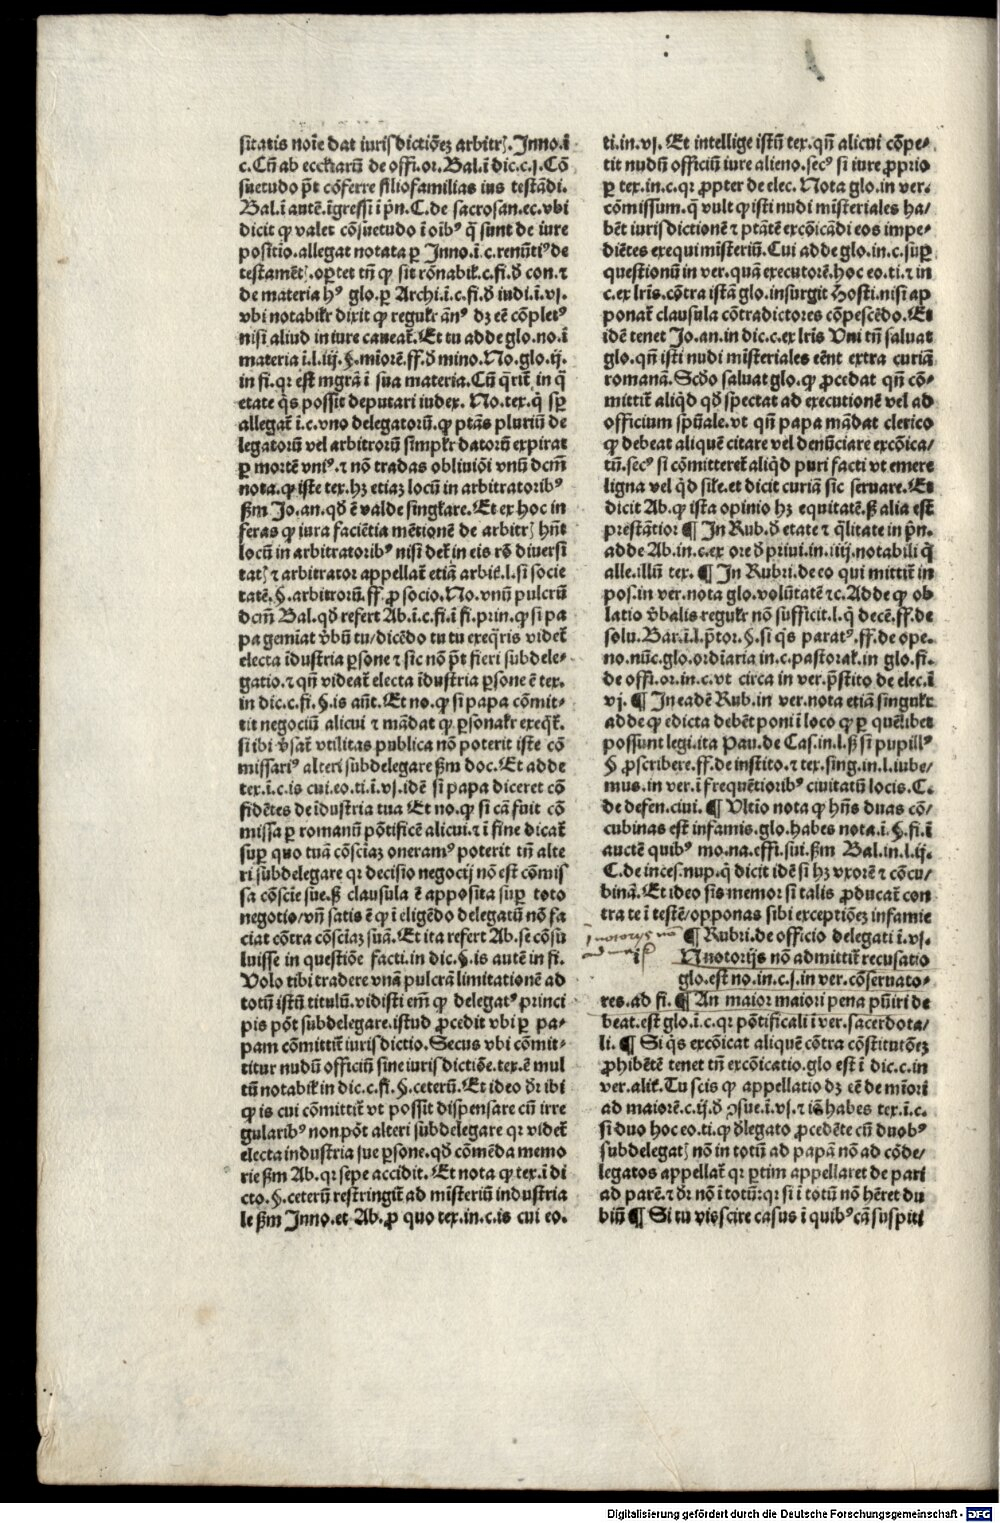 sitatis noīe dat iurisdictiōeꝫ arbitrꝭ. Inno.ī
c.Cū ab eccksiarū de offi.or. Bal.ī dic.c.j.Cō
suetudo p̄t cōferre filiofamilias ius testādi.
Bal.ī autē.īgressi ī p̄n.C.de sacrosan.ec.vbi
dicit ꝙ valet cōsuetudo ī oībꝰ q̄ sunt de iure
positio.allegat notata ꝑ Inno.ī.c.renūtiꝰ de
testamētꝭ.oꝑtet tn̄ ꝙ sit rōnabiƚ.c.fi.ď con.⁊
de materia hꝰ glo.ꝑ Archi.ī.c.fi.ď iudi.ī.vj.
vbi notabiƚr dixit ꝙ reguƚr ānꝰ dꝫ eē cōpletꝰ
nisi aliud in iure caueat̄.Et tu adde glo.no.ī
materia ī.l.iij.§.miorē.ff.ď mino.No.glo.ij.
in fi.qr est mgrā ī sua materia.Cū q̄rit̄ in q̄
etate q̄s possit deputari iudex. No.tex.q̄ sꝑ
allegat̄ ī.c.vno delegatorū.ꝙ ptās pluriū de
legatorū vel arbitrorū simpƚr datorū expirat
ꝑ mortē vniꝰ.⁊ nō tradas obliuiōi vnū dcm̄
nota.ꝙ iste tex.hꝫ etiaꝫ locū in arbitratoribꝰ
ßm Jo.an.qď ē valde singƚare.Et ex hoc in
feras ꝙ iura faciētia mētionē de arbitrꝭ hn̄t
locū in arbitratoribꝰ nisi det̄ in eis rō diuersi
tatꝭ ⁊ arbitrator appellat̄ etiā arbiť.l.si socie
tatē.§.arbitrorū.ff.ꝓ socio.No.vnū pulcrū
dcm̄ Bal.qď refert Ab.ī.c.fi.ī fi.prin.ꝙ si pa
pa gemīat v̄bū tu/dicēdo tu tu exeq̄ris videt̄
electa īdustria ꝑsone ⁊ sic nō p̄t fieri subdele-
gatio.⁊ qn̄ videat̄ electa īdustria ꝑsone ē tex.
in dic.c.fi.§.is aūt. Et no.ꝙ si papa cōmit-
tit negociū alicui ⁊ mādat ꝙ ꝑsonaƚr exeq̄t̄.
si ibi v̄sat̄ vtilitas publica nō poterit iste cō
missariꝰ alteri subdelegare ßm doc.Et adde
tex.ī.c.is cui.eo.ti.ī.vj.idē si papa diceret cō
fidētes de īdustria tua Et no.ꝙ si cā fuit cō
missa ꝑ romanū pōtificē alicui.⁊ ī fine dicat̄
suꝑ quo tuā cōsciaꝫ oneramꝰ poterit tn̄ alte
ri subdelegare qr decisio negocij nō est cōmis
sa cōscie sue.ß clausula ē apposita suꝑ toto
negotio/vn̄ satis ē ꝙ ī eligēdo delegatū nō fa
ciat cōtra cōsciaꝫ suā.Et ita refert Ab.se cōsu
luisse in questiōe facti.in dic.§.is autē in fi.
Volo tibi tradere vnā pulcrā limitationē ad
totū istū titulū.vidisti em̄ ꝙ delegatꝰ princi
pis pōt subdelegare.istud ꝓcedit vbi ꝑ pa-
pam cōmittit̄ iurisdictio.Secus vbi cōmit-
titur nudū officiū sine iurisdictiōe.tex.ē mul
tū notabiƚ in dic.c.fi.§.ceterū.Et ideo dr̄ ibi
ꝙ is cui cōmittit̄ vt possit dispensare cū irre
gularibꝰ non pōt alteri subdelegare qr videt̄
electa industria sue ꝑsone.qď cōmēda memo
rie ßm Ab.qr sepe accidit.Et nota ꝙ tex.ī di
cto.§.ceterū restringit̄ ad misteriū industria
le ßm Inno.et Ab.ꝓ quo tex.in.c.is cui eo.
ti.in.vj. Et intellige istū tex.qn̄ alicui cōpe-
tit nudū officiū iure alieno.secꝰ si iure ꝓprio
ꝑ tex.in.c.qr ꝓpter de elec. Nota glo.in ver.
cōmissum.q̄ vult ꝙ isti nudi misteriales ha/
bēt iurisdictionē ⁊ ptātē excōicādi eos impe-
diētes exequi misteriū.Cui adde glo.in.c.suꝑ
questionū in ver.quā executorē.hoc eo.ti.⁊ in
c.ex lr̄is.cōtra istā glo.insurgit Hosti.nisi ap
ponat̄ clausula cōtradictores cōpescēdo.Et
idē tenet Jo.an.in dic.c.ex lr̄is Vni tn̄ saluat
glo.qn̄ isti nudi misteriales eēnt extra curiā
romanā.Scďo saluat glo.ꝙ ꝓcedat qn̄ cō-
mittit̄ aliqď qď spectat ad executionē vel ad
officium sp̄uale.vt qn̄ papa mādat clerico
ꝙ debeat aliquē citare vel denūciare excōica/
tū.secꝰ si cōmitteret̄ aliqď puri facti vt emere
ligna vel qď sile.et dicit curiā sic seruare.Et
dicit Ab.ꝙ ista opinio hꝫ equitatē.ß alia est
prestātior ¶ In Rub.ď etate ⁊ q̄litate in p̄n.
adde Ab.in.c.ex ore ď priui.in.iiij.notabili q̄
alle.illū tex. ¶ In Rubri.de eo qui mittit̄ in
pos.in ver.nota glo.volūtatē ⁊c.Adde ꝙ ob
latio v̄balis reguƚr nō sufficit.l.q̄ decē.ff.de
solu.Bar.ī.l.p̄tor.§.si q̄s paratꝰ.ff.de ope.
no.nūc.glo.ordīaria in.c.pastoraƚ.in glo.fi.
de offi.or.in.c.vt circa in ver.p̄stito de elec.ī
vj. ¶ In eadē Rub.in ver.nota etiā singuƚr
adde ꝙ edicta debēt poni ī loco ꝙ ꝑ quēlibet
possunt legi.ita Pau.de Cas.in.l.ß si pupillꝰ
§ ꝓscribere.ff.de instito.⁊ tex.sing.in.l.iube/
mus.in ver.ī frequētioribꝰ ciuitatū locis.C.
de defen.ciui. ¶ Vltio nota ꝙ hn̄s duas cō/
cubinas est infamis.glo.habes nota.ī.§.fi.ī
auctē quibꝰ mo.na.effi.sui.ßm Bal.in.l.ij.
C.de inces.nup.q̄ dicit idē si hꝫ vxorē ⁊ cōcu/
binā.Et ideo sis memor si talis ꝓducat̄ con
tra te ī testē/opponas sibi exceptiōeꝫ infamie
¶ Rubri.de officio delegati ī.vj.
IN notorijs nō admittit̄ recusatio
glo.est no.in.c.j.in ver.cōseruato-
res.ad fi. ¶ An maior maiori pena puīri de
beat.est glo.ī.c.qr pōtificali ī ver.sacerdota/
li. ¶ Si q̄s excōicat aliquē cōtra cōstitutōeꝫ
ꝓhibētē tenet tn̄ excōicatio.glo est ī dic.c.in
ver.aliƚ.Tu scis ꝙ appellatio dꝫ eē de miori
ad maiorē.c.ij.ď ꝯsue.ī.vj.⁊ iā habes tex.ī.c.
si duo hoc eo.ti.ꝙ ďlegato ꝓcedēte cū duobꝰ
subdelegatꝭ nō in totū ad papā nō ad cōde/
legatos appellat̄ qr ꝑtim appellaret de pari
ad parē.⁊ dr̄ nō ī totū:qr si ī totū nō hēret du
biū ¶ Si tu vis scire casus ī quibꝰ cā suspiti
Digitalisierung gefördert durch die Deutsche Forschungsgemeinschaft - DFG